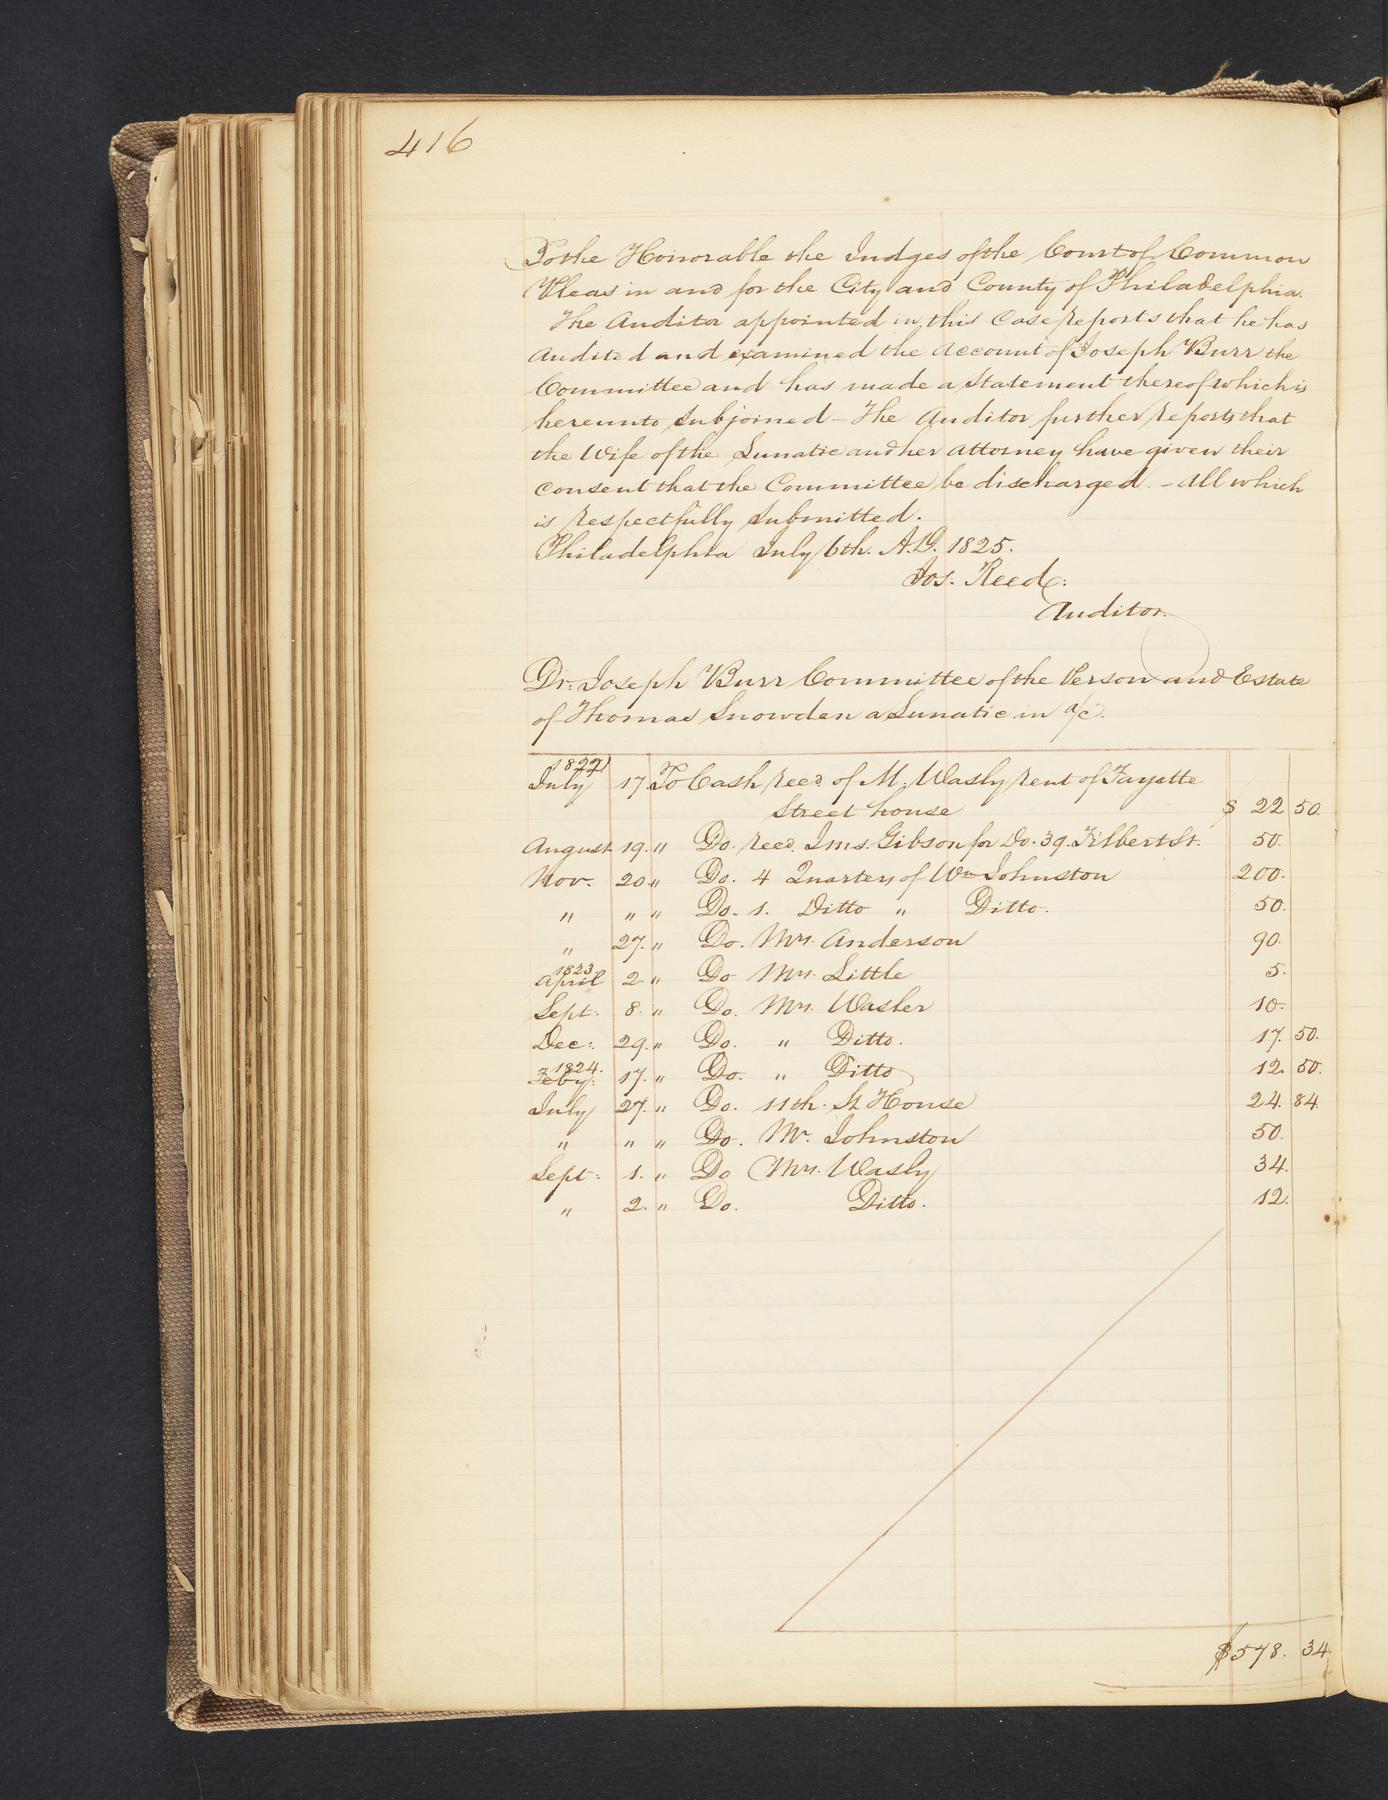 416
To the Honorable the Judges of the Court of Common
Pleas in and for the City and County of Philadelphia.
The Auditor appointed in this Case reports that he has
audited and examined the account of Joseph Burr the
Committee and has made a Statement thereof which is
hereunto Subjoined – The Auditor further reports that
the Wife of the Lunatic and her attorney have given their
consent that the Committee be discharged. – All which
is respectfully Submitted.
Philadelphia July 6th. A.D. 1825.
Jos. Reed:
Auditor.
Dr. Joseph Burr Committee of the Person and Estate
of Thomas Snowden a Lunatic in a/c.
1822
July 17. To Cash recd. of M. Wasly rent of Fayette
Street house $ 22 50.
August 19. " Do. recd. Jms. Gibson for Do. 39. Filbert St. 50.
Nov. 20 " Do. 4 Quarters of Wm Johnston 200.
" " " Do. 1. Ditto " Ditto. 50.
" 27. " Do. Mrs. Anderson 90.
1823
April 2 " Do Mrs. Little 5.
Sept. 8. " Do. Mrs. Wasler 10.
Dec: 29. " Do. " Ditto. 17. 50.
1824.
Feby: 17. " Do. " Ditto 12. 50.
July 27. " Do. 11th. St House 24. 84.
" " " Do. Mr. Johnston 50.
Sept: 1. " Do Mrs. Wasly 34.
" 2. " Do. Ditto. 12.
$578. 34